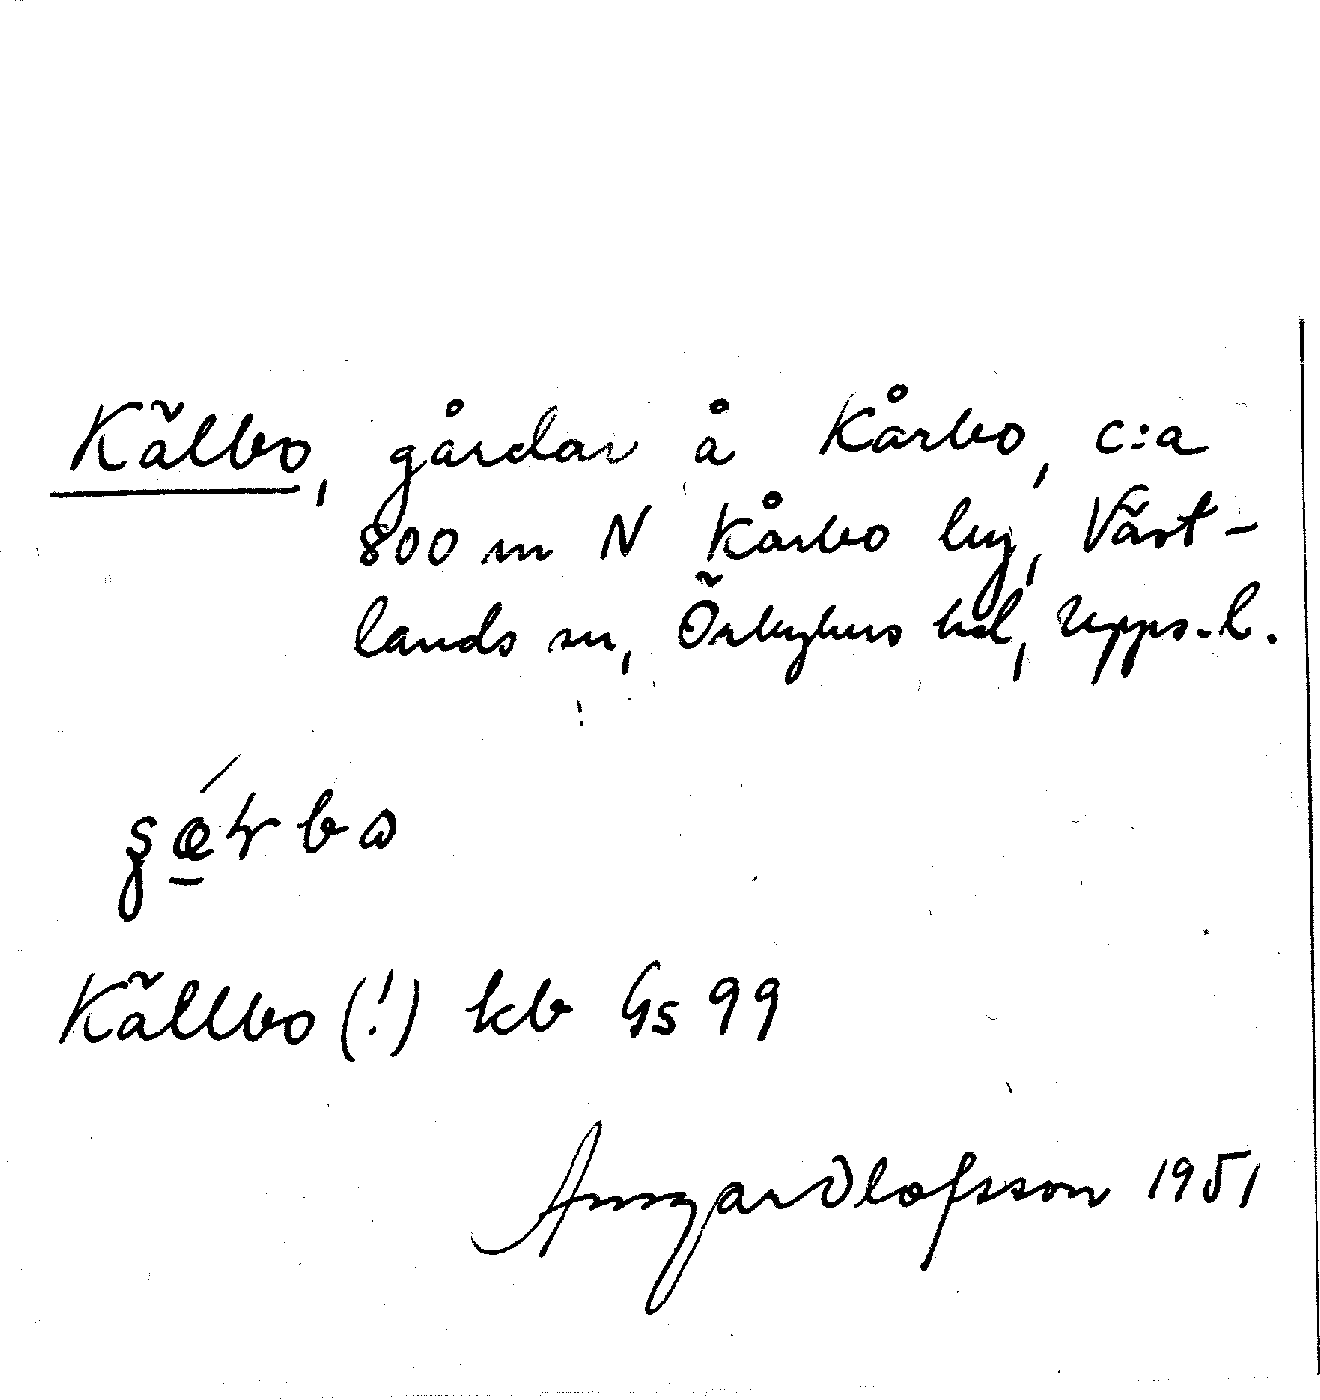 Kälbo, gårdar å Kårbo, c:a
800 m N Kårbo by, Väst-
lands sn, Örbyhus hd, Upps.l.
Källbo (!) kb Gs 99
Ansgar Olofsson 1951